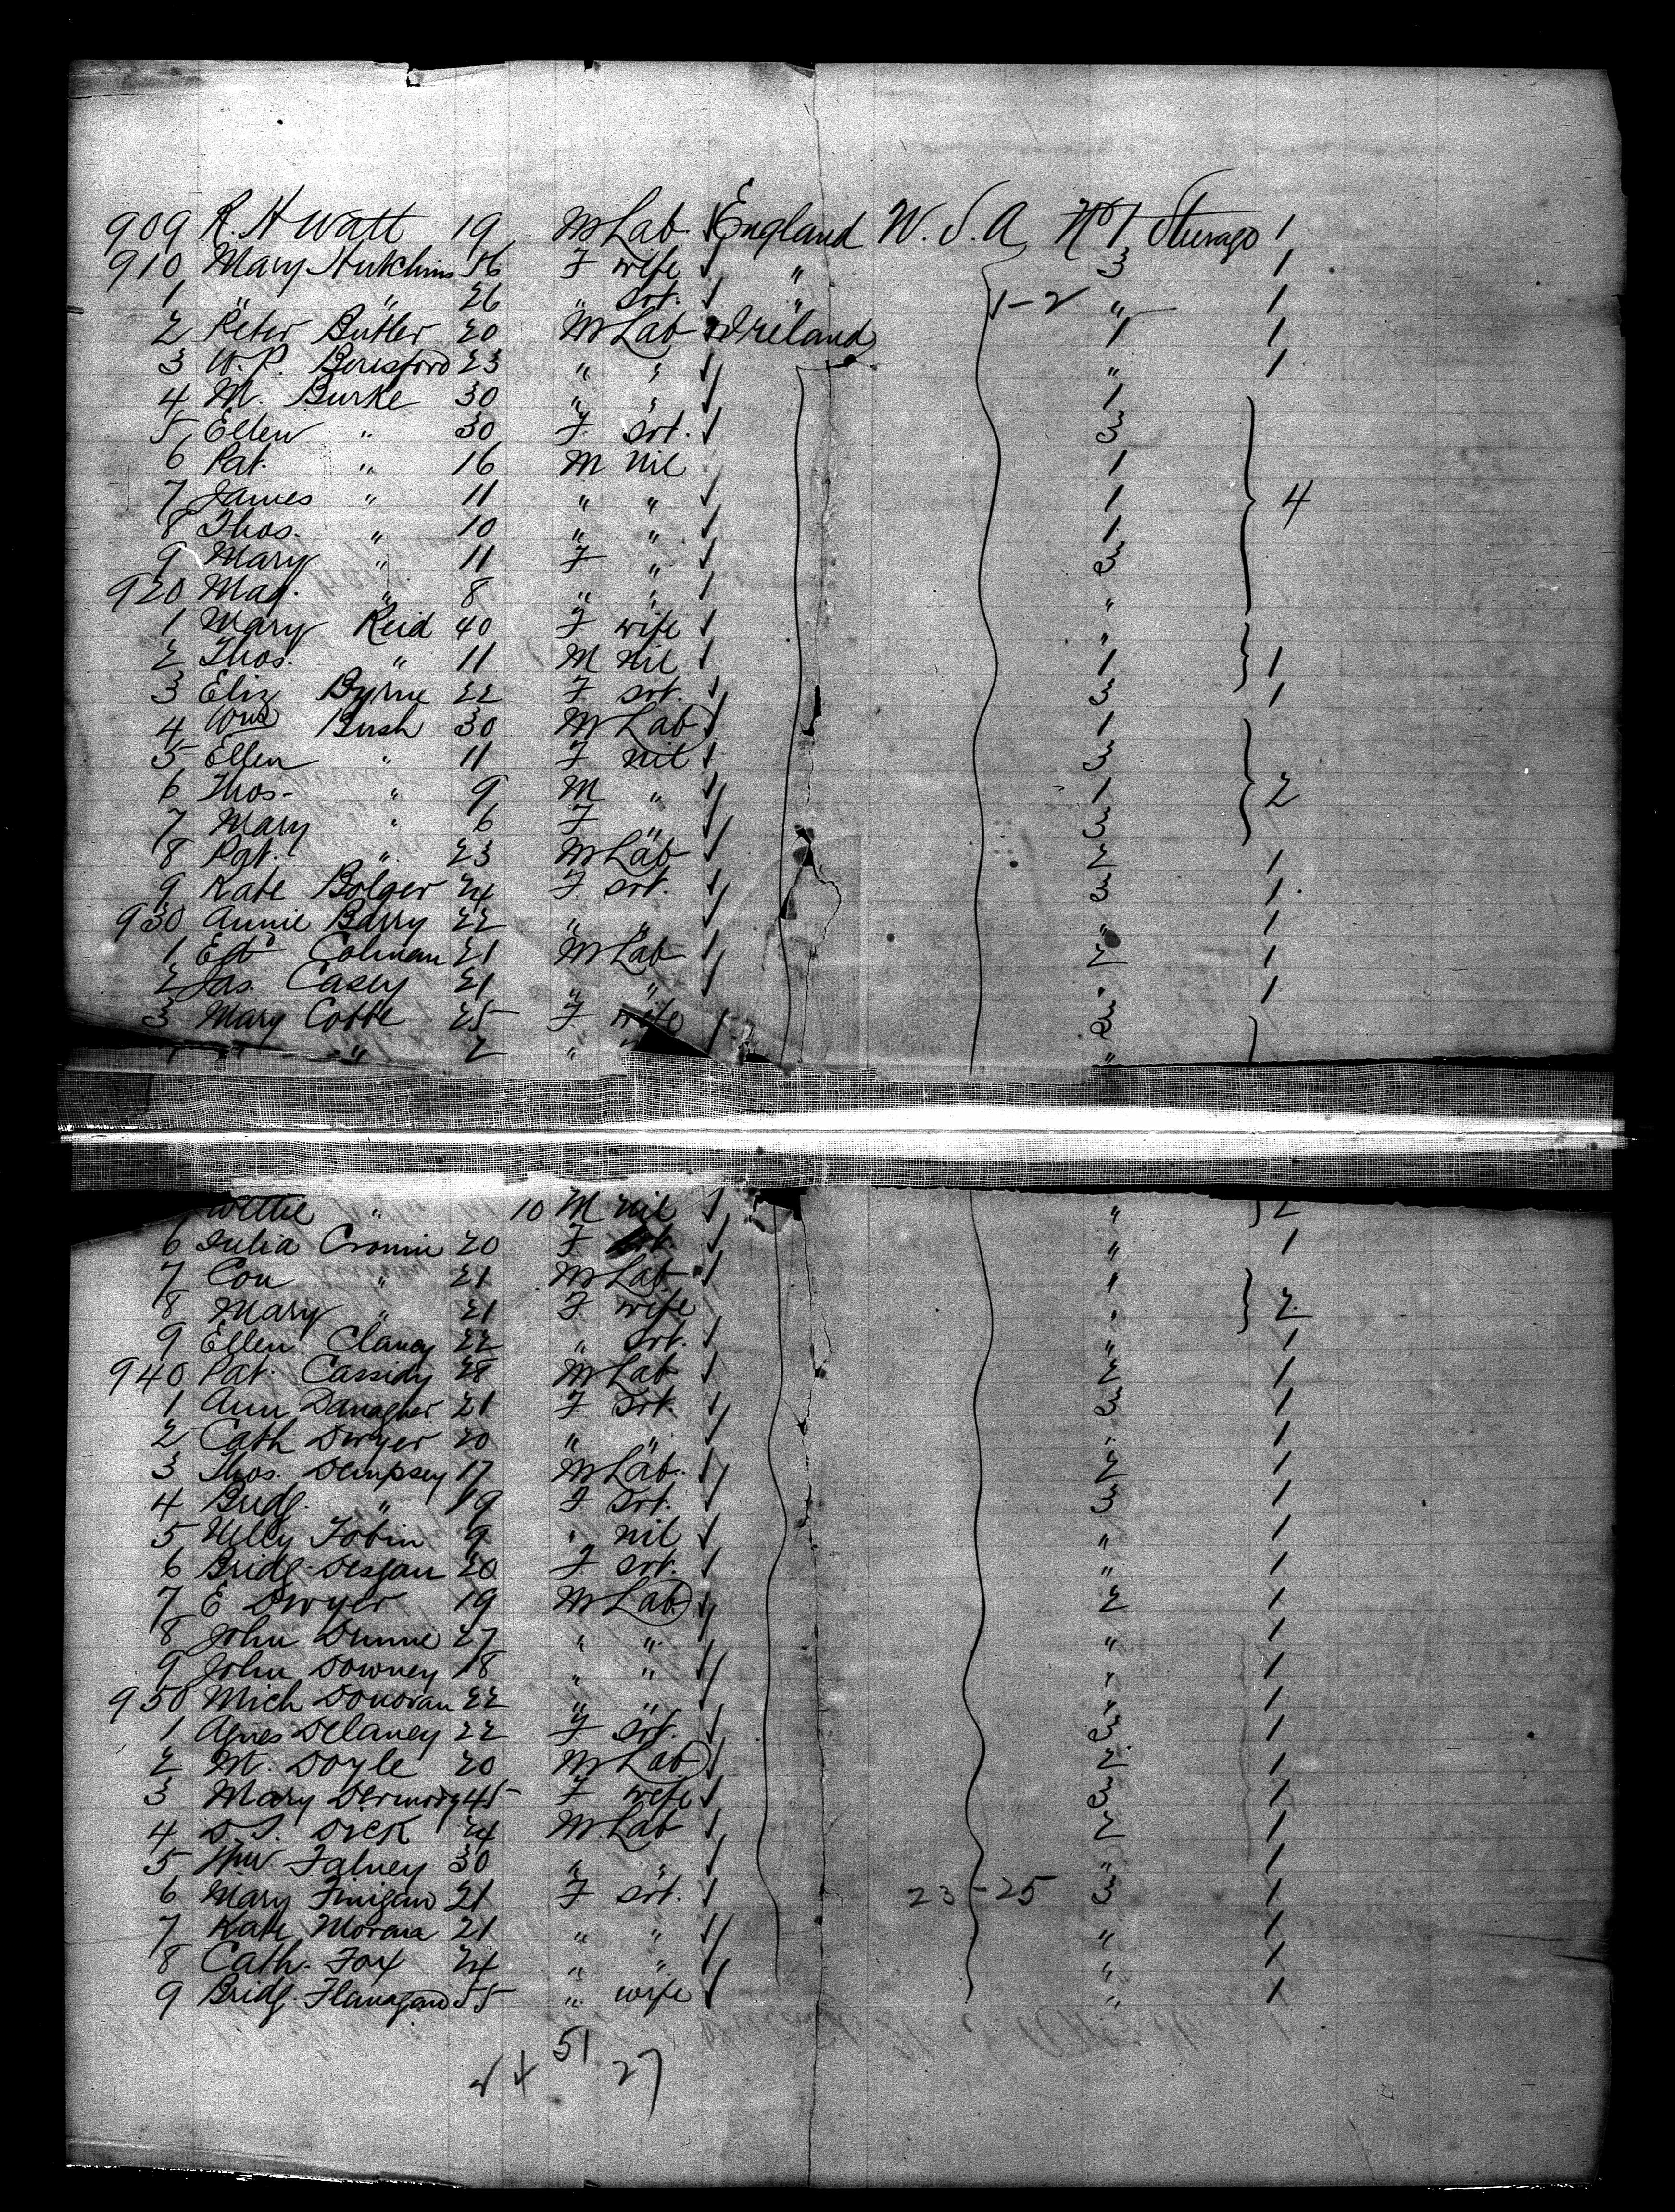 909 R. H Watt 19 M Lab England U.S.A No 1 Sturago 1
910 Mary Hutchins 56 F wife " 3 1
1 " " 26 " srt. " 1-2 " 1
2 Peter Butler 20 M Lab Ireland 1 1
3 W. P. Beresford 23 " " " 1
4 M. Burke 30 " " 1
5 Ellen " 30 F srt. 3
6 Pat. " 16 M nil 1
7 James " 11 " " 1 4
8 Thos. " 10 " " 1
9 Mary " 11 F " 3
920 Mag. " 8 " " "
1 Mary Reid 40 F wife "
2 Thos. " 11 M nil 1 1
3 Eliz Byrne 22 F srt. 3 1
4 Wm Bush 30 M Lab 1
5 Ellen " 11 F nil 3
6 Thos. " 9 M " 1 2
7 Mary " 6 F " 3
8 Pat. " 23 M Lab 2 1
9 Kate Bolger 24 F srt. 3 1
930 Annie Barry 22 " " " 1
1 Ed Colman 21 M Lab 2 1
2 Jas. Casey 21 " " " 1
3 Mary Cotte 25 F wife 3
" " 2 " "
Willie " 10 M nil " 2
6 Julia Cronin 20 F srt. " 1
7 Con " 21 M Lab 1
8 Mary " 21 F wife " 2
9 Ellen Clancy 22 " srt. " 1
940 Pat. Cassidy 28 M Lab 2 1
1 Ann Danagher 21 F srt. 3 1
2 Cath Dwyer 20 " " " 1
3 Thos. Dempsey 17 M Lab. 2 1
4 Bridg. " 19 F srt. 3 1
5 Nelly Tobin 9 " nil " 1
6 Bridg. 20 F srt. " 1
7 E Dwyer 19 M Lab 2 1
8 John Dunne 27 " " " 1
9 John Downey 18 " " " 1
950 Mich Donovan 22 " " " 1
1 Agnes Delaney 22 F srt. 3 1
2 M. Doyle 20 M Lab 2 1
3 Mary Dermody 45 F wife 3 1
4 D. S. Dick 24 M. Lab 2 1
5 Wm Falvey 30 " " " 1
6 Mary Finigan 21 F srt. 23-25 3 1
7 Kate Moran 21 " " " 1
8 Cath. Fox 24 " " " 1
9 Bridg. Flanagan 55 " wife " 1
51
24 27